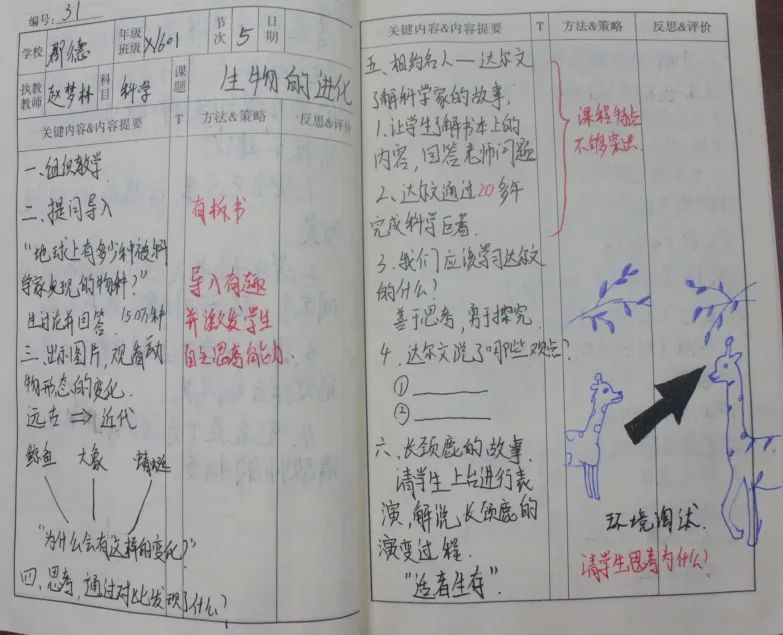 编号: 31
学校 郡德 年级班级 X1601 节次 5 日期
执教教师 赵梦林 科目 科学 课题 生物的进化
关键内容&内容提要 T 方法&策略 反思&评价
一、组织教学
二、提问导入 有板书
"地球上有多少种被科
学家发现的物种?" 导入有趣
生讨论并回答. 150万种 并激发学生
三. 出示图片, 观看动 自主思考的能力.
物形态的变化.
远古 ⇒ 近代
鲸鱼 大象 蜻蜓
"为什么会有这样的变化?"
四、思考, 通过对比发现了什么?
关键内容&内容提要 T 方法&策略 反思&评价
五、相约名人—达尔文
了解科学家的故事,
1. 让学生了解书本上的 课程特点
内容, 回答老师问题 不够突出
2、达尔文通过20多年
完成科学巨著.
3. 我们应该学习达尔文
的什么?
善于思考, 勇于探究.
4. 达尔文说了哪些观点?
①
②
六、长颈鹿的故事.
请学生上台进行表
演, 解说长颈鹿的 环境淘汰.
演变过程. 请学生思考为什么?
"适者生存".